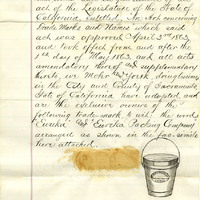 act of the Legislature of the State of
California entitled, An Act concerning
Trade Marks and Names which said
act was approved April 3rd 1863
and took effect from and after the
1st day of May 1863, and all acts
amendatory thereof and supplementary
thereto, we doing business
in the City and County of Sacramento
State of California have adopted and
are the exclusive owners of the
following trade mark, to wit: the words
Eureka and Eureka Packing Company
arranged as shown in the fac-simile
here attached.